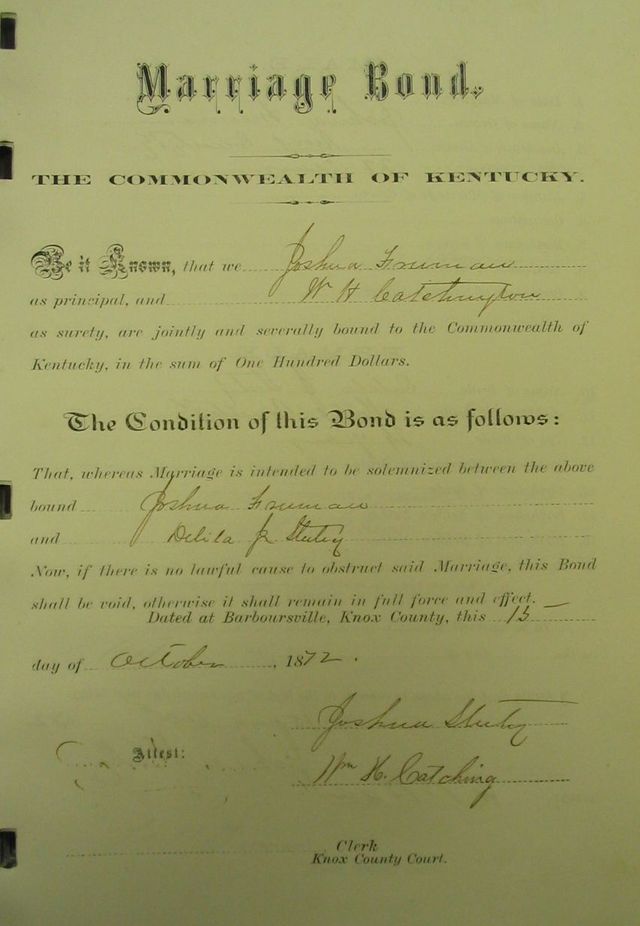 Marriage Bond.
THE COMMONWEALTH OF KENTUCKY.
Be it Known, that we Joshua Fruman
as principal, and W H Catchington
as surety, are jointly and severally bound to the Commonwealth of
Kentucky, in the sum of One Hundred Dollars.
The Condition of this Bond is as follows:
That, whereas Marriage is intended to be solemnized between the above
bound Joshua Fruman
and Delila Jr
Now, if there is no lawful cause to obstruct said Marriage, this Bond
shall be void, otherwise it shall remain in full force and effect.
Dated at Barboursville, Knox County, this 15
day of October, 1872.
Joshua
Attest: Wm H. Catching
Clerk
Knox County Court.